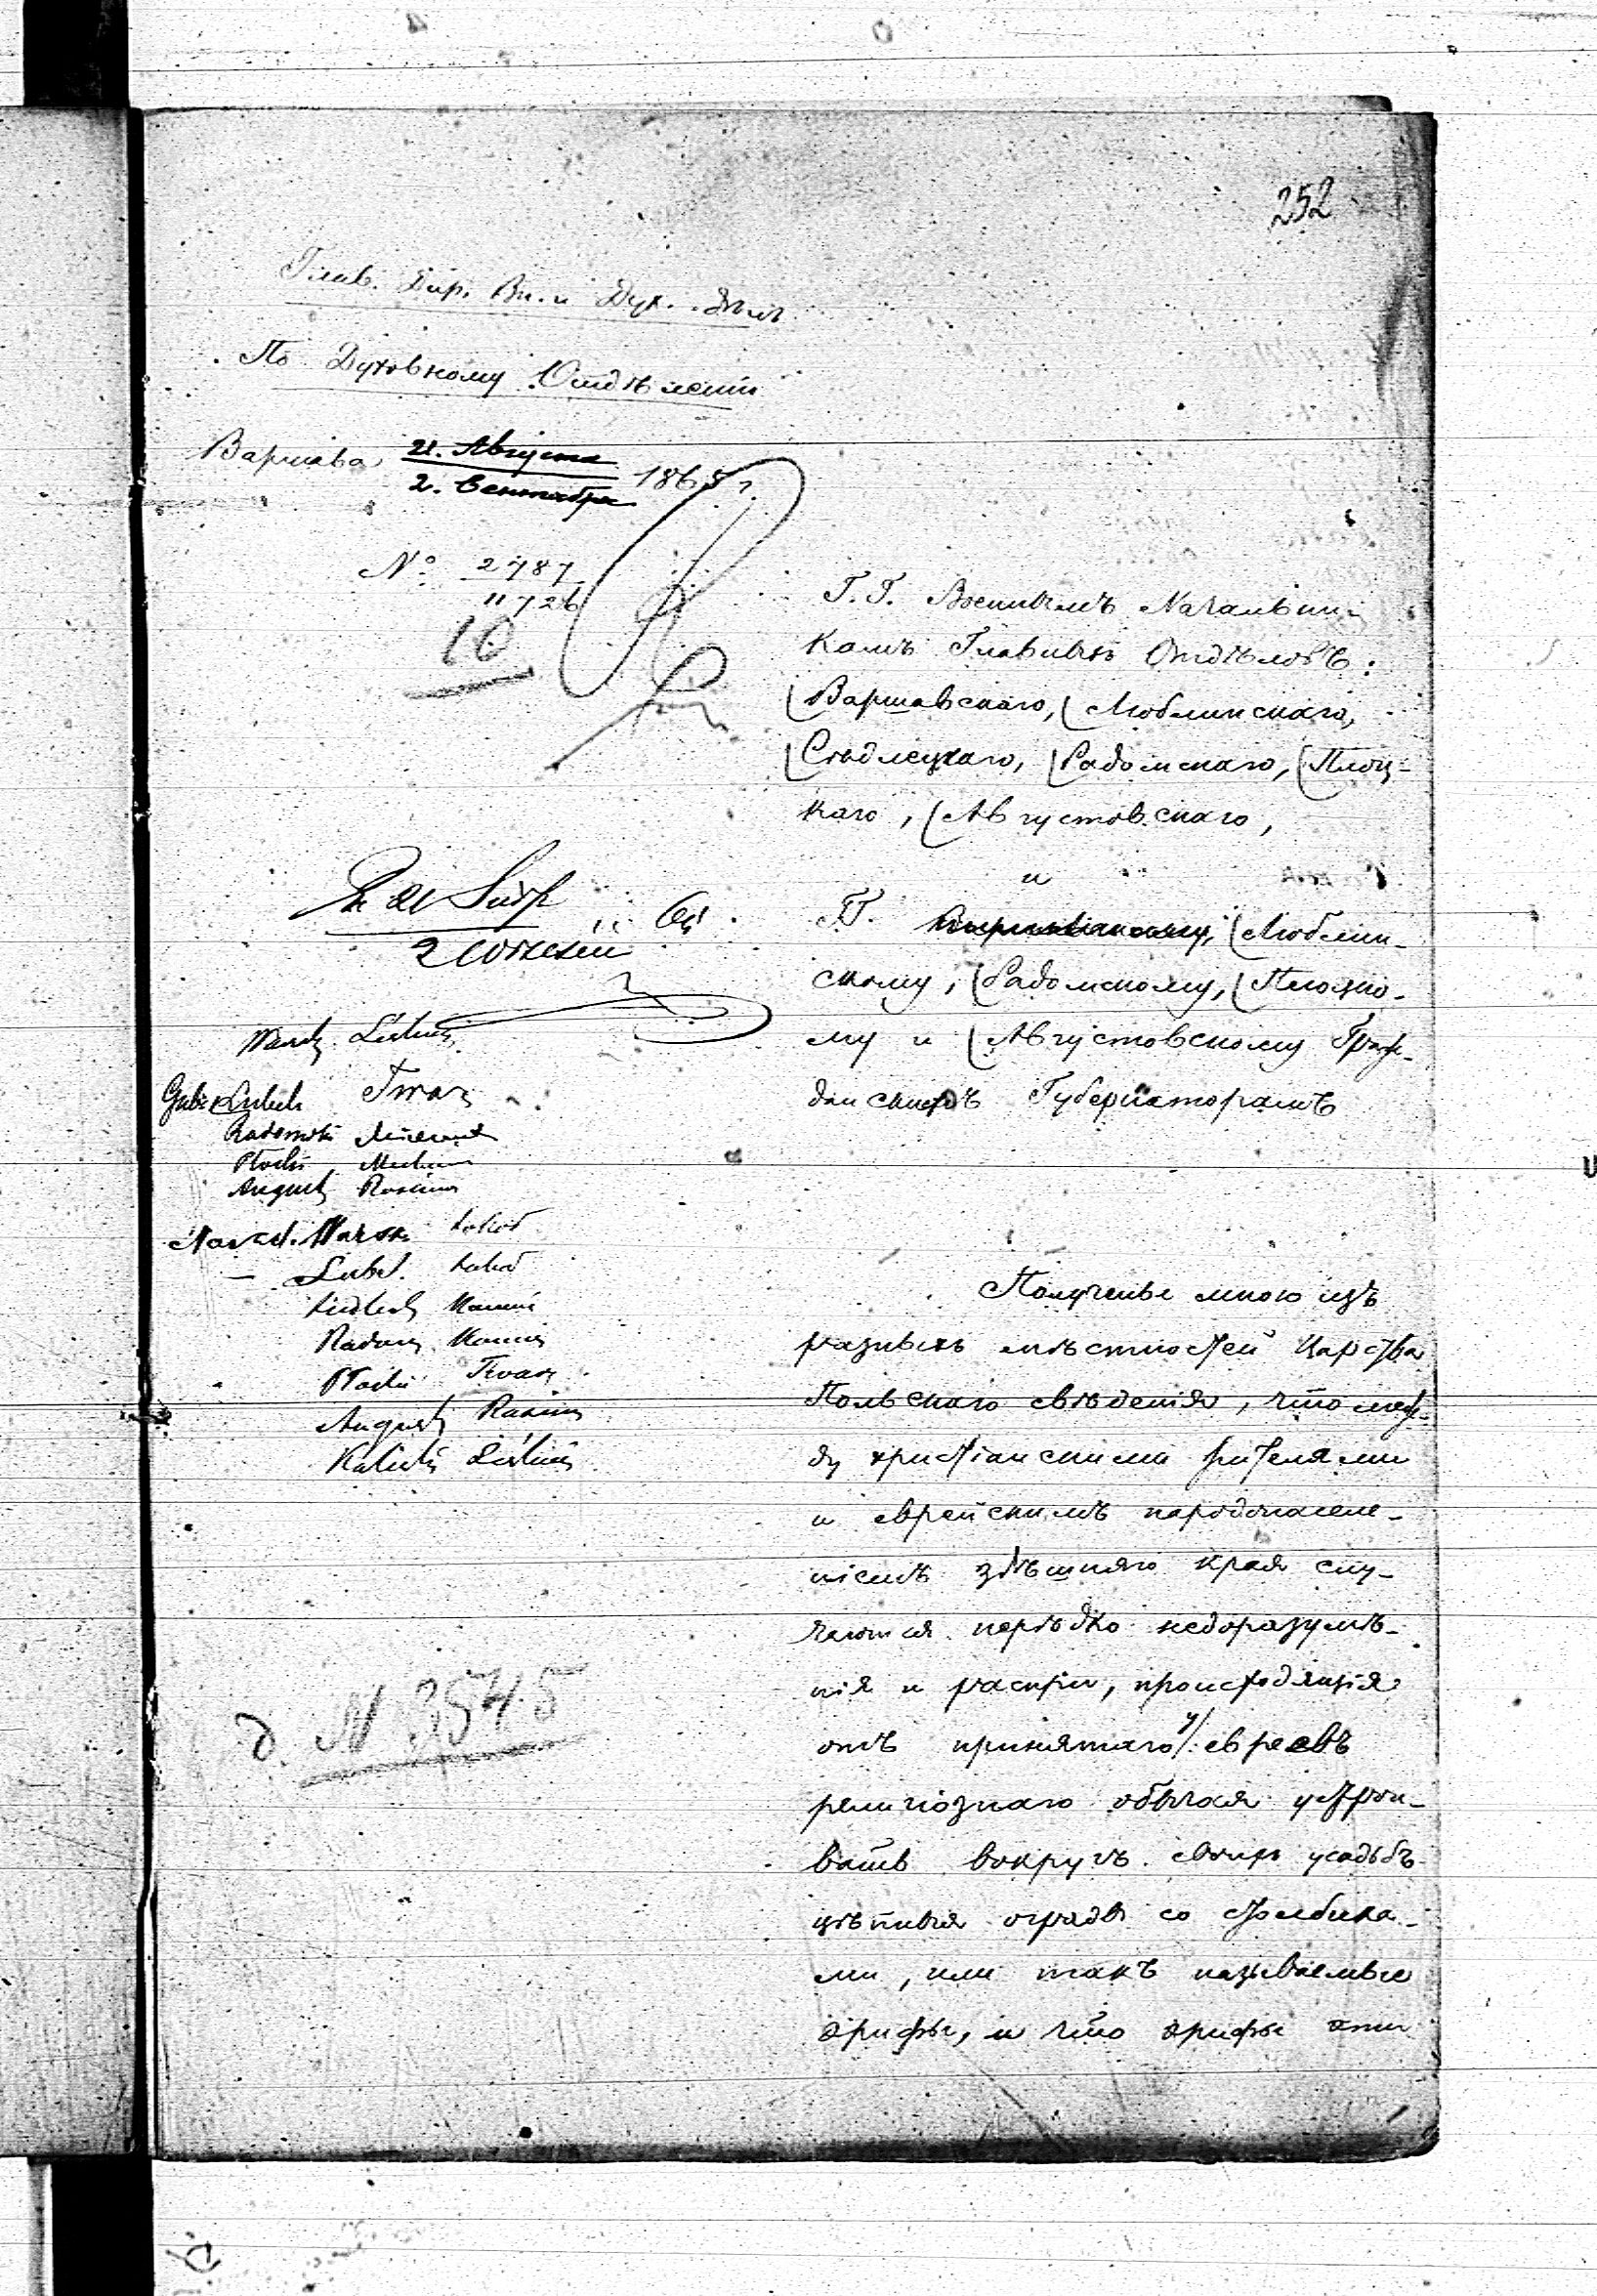 252
Глав. Дир. Вн. и Дух. дѣлъ
По Духовному Отдѣленію
Варшава 21. Августа 1865 г.
2. Сентября
№ 2787
11726
10
Г.Г. Военнымъ Начальни-
камъ Главныхъ Отдѣловъ:
Варшавскаго, Люблинскаго,
Сѣдлецкаго, Радомскаго, Плоц-
каго, Августовскаго,
и
ГГ. Люблин-
скому, Радомскому, Плоцко-
му и Августовскому Граж-
данскимъ Губернаторамъ
21 Sierp
2 Wrzesień
Radomski
Płocki
August
Naczel. Warsz.
Lubel.
Siedleck
Radom
Płocki
August
Kaliski
Полученные мною изъ
разныхъ мѣстностей Царства
Польскаго свѣдѣнія, что меж-
ду христіанскими жителями
и еврейскимъ народонаселе-
ніемъ здѣшняго края слу-
чаются нерѣдко недоразумѣ-
нія и распри, происходящія
отъ принятаго у евреевъ
религіознаго обычая устрои-
вать вокругъ своихъ усадьбъ
цѣпныя ограды со столбика-
ми, или такъ называемые
эрифы, и что эрифы эти
д. N 3545